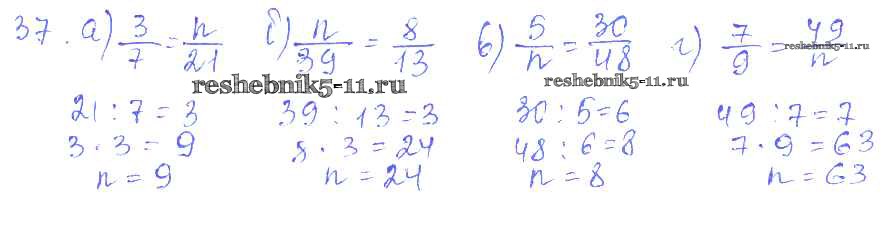 37. а) 3/7 = n/21 б) n/39 = 8/13 в) 5/n = 30/48 г) 7/9 = 49/n
reshebnik5-11.ru reshebnik5-11.ru reshebnik5-11.ru
21 : 7 = 3 39 : 13 = 3 30 : 5 = 6 49 : 7 = 7
3 · 3 = 9 8 · 3 = 24 48 : 6 = 8 7 · 9 = 63
n = 9 n = 24 n = 8 n = 63